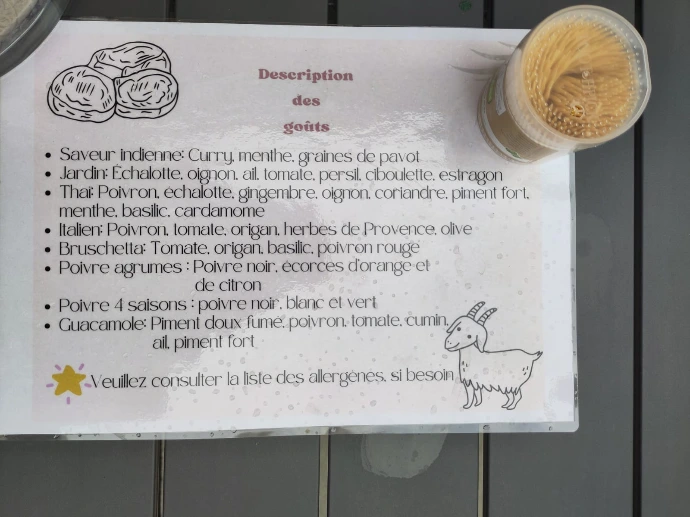 Description
des
goûts
• Saveur indienne: Curry, menthe, graines de pavot
• Jardin: Échalotte, oignon, ail, tomate, persil, ciboulette, estragon
• Thaï: Poivron, échalotte, gingembre, oignon, coriandre, piment fort,
menthe, basilic, cardamome
• Italien: Poivron, tomate, origan, herbes de Provence, olive
• Bruschetta: Tomate, origan, basilic, poivron rouge
• Poivre agrumes : Poivre noir, écorces d'orange et
de citron
• Poivre 4 saisons : poivre noir, blanc et vert
• Guacamole: Piment doux fumé, poivron, tomate, cumin,
ail, piment fort
Veuillez consulter la liste des allergénes, si besoin